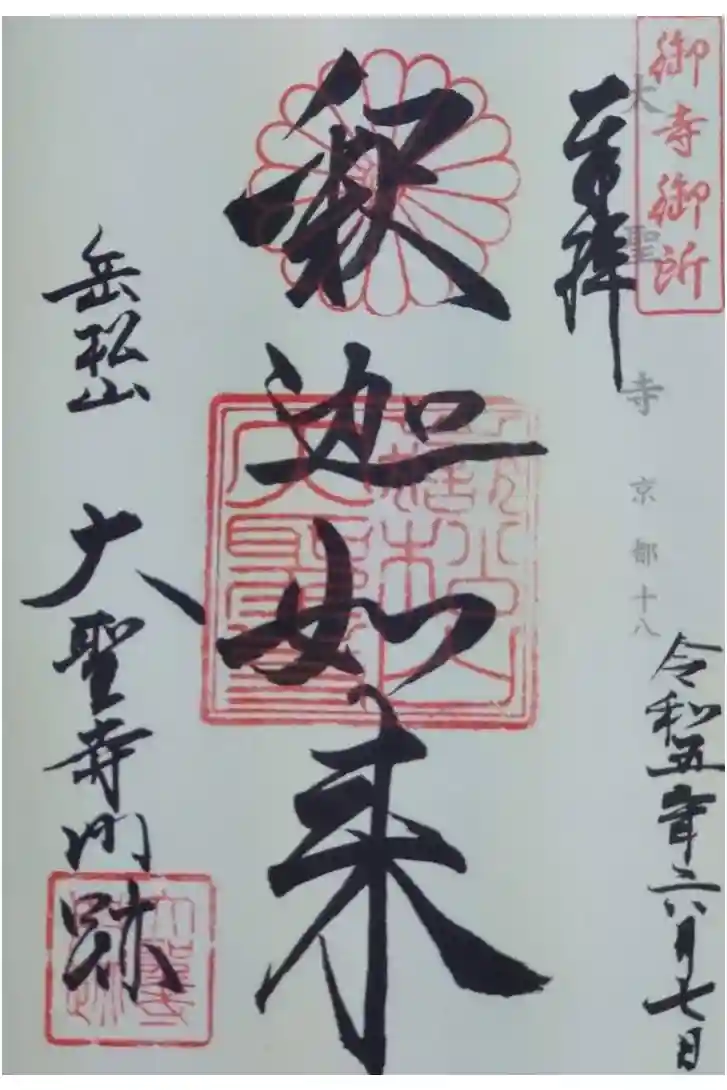 御寺御所
大聖寺 京都十八
奉拝
令和五年六月七日
釈迦如来
岳松山 大聖寺門跡